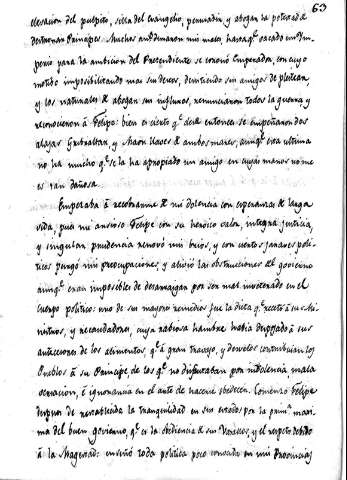 63
elevacion del pulpito, silla del evangelio, persuadian, y abogan la potestad
destronar Principes. Muchos
perio para la ambicion del Pretendiente se coronó Emperador, con cuyo
motibo imposibilitando mas sus deseos, desistiendo sus amigos de pleitear,
y los naturales de abogar sin ningunos, renunciaron todos la guerra y
reconocieron á Felipe: bien es cierto q.e desde entonces se empeñaron dos
alajas Gibraltar, y Maon llaves de ambos mares, aunq.e esta ultima
no ha mucho q.e se la ha apropiado un amigo en cuyas manos no me
es tan dañosa.
Empezaba á recobrarme de mi dolencia con esperanzas de larga
vida, pues me ansioso Felipe con su heroico valor, integra justicia,
y singular prudencia renovó mis brios, y con ciertos jarabes poli-
ticos purgó mis preocupaciones, y alivió las obstrucciones del govierno
aunq.e eran imposibles de desarraigar por ser mal inveterado en el
cuerpo politico: uno de sus mayores remedios fue la dieta q.e recetó á sus Mi-
nistros, y recaudadores, cuya rabiosa hambre habia despojado á sus
antecesores de los alimentos q.e á gran trabajo, y desvelos contribuian los
Pueblos á su Principe de los q.e no disfrutaban por indolencia, mala
versacion, é ignorancia en el arte de hacerse obedecer. Comenzó Felipe
despues de restablecida la tranquilidad en sus estados por la prim.a maxi-
ma del buen govierno, q.e es la obediencia de sus Vasallos, y el respeto debido
á la Magestad: enseñó toda politica poco conocida en mis Provincias